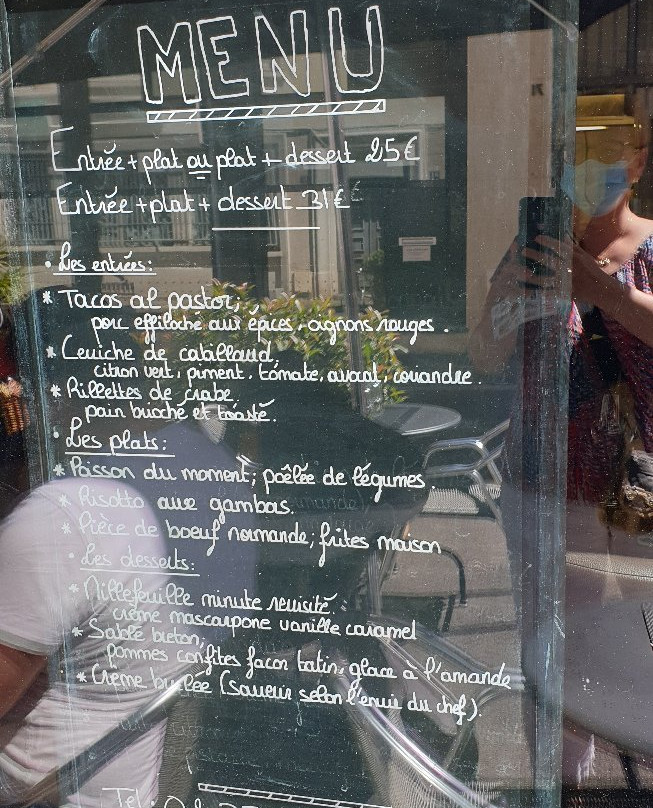 MENU
Entrée + plat ou plat + dessert 25€
Entrée + plat + dessert 31€
• Les entrées :
* Tacos al pastor,
porc effiloché aux épices, oignons rouges.
* Ceviche de cabillaud,
citron vert, piment, tomate, avocat, coriandre.
* Rillettes de crabe,
pain brioché et toasté.
• Les plats :
* Poisson du moment, poêlée de légumes.
* Risotto aux gambas.
* Pièce de boeuf normande, frites maison
• Les desserts :
* Millefeuille minute revisité :
crème mascarpone vanille caramel
* Sablé breton,
pommes confites façon tatin, glace à l'amande
* Crème brulée (saveur selon l'envie du chef).
Tel: